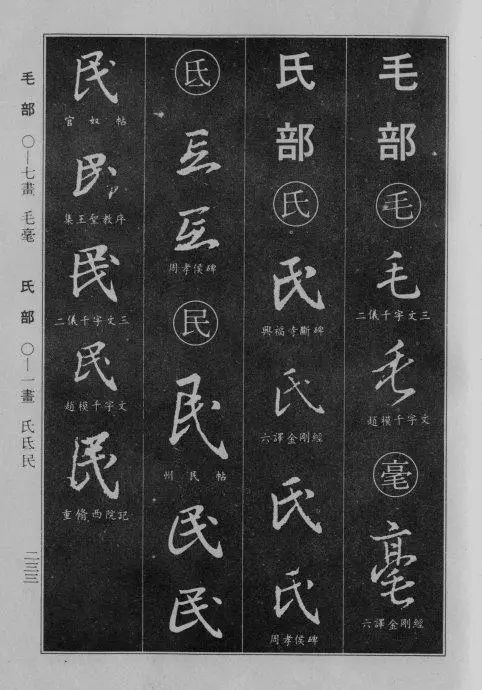 毛部
毛
毛
二儀千字文三
毛
趙模千字文
毫
毫
六譯金剛經
氏部
氏
氏
興福寺斷碑
氏
六譯金剛經
氏
氏
周孝侯碑
氐
氐
氐
周孝侯碑
民
民
州民帖
民
民
民
官奴帖
民
集王聖教序
民
二儀千字文三
民
趙模千字文
民
重脩西院記
毛部 〇—七畫 毛毫 氏部 〇—一畫 氏氐民
二三三